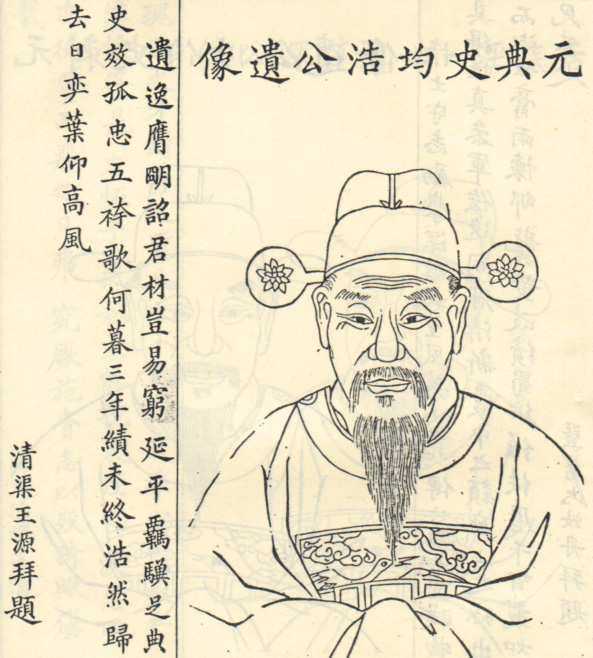 元典史均浩公遺像
遺逸膺明詔君材豈易窮延平覊驥足典
史效孤忠五袴歌何暮三年績未終浩然歸
去日奕葉仰高風
清渠王源拜題